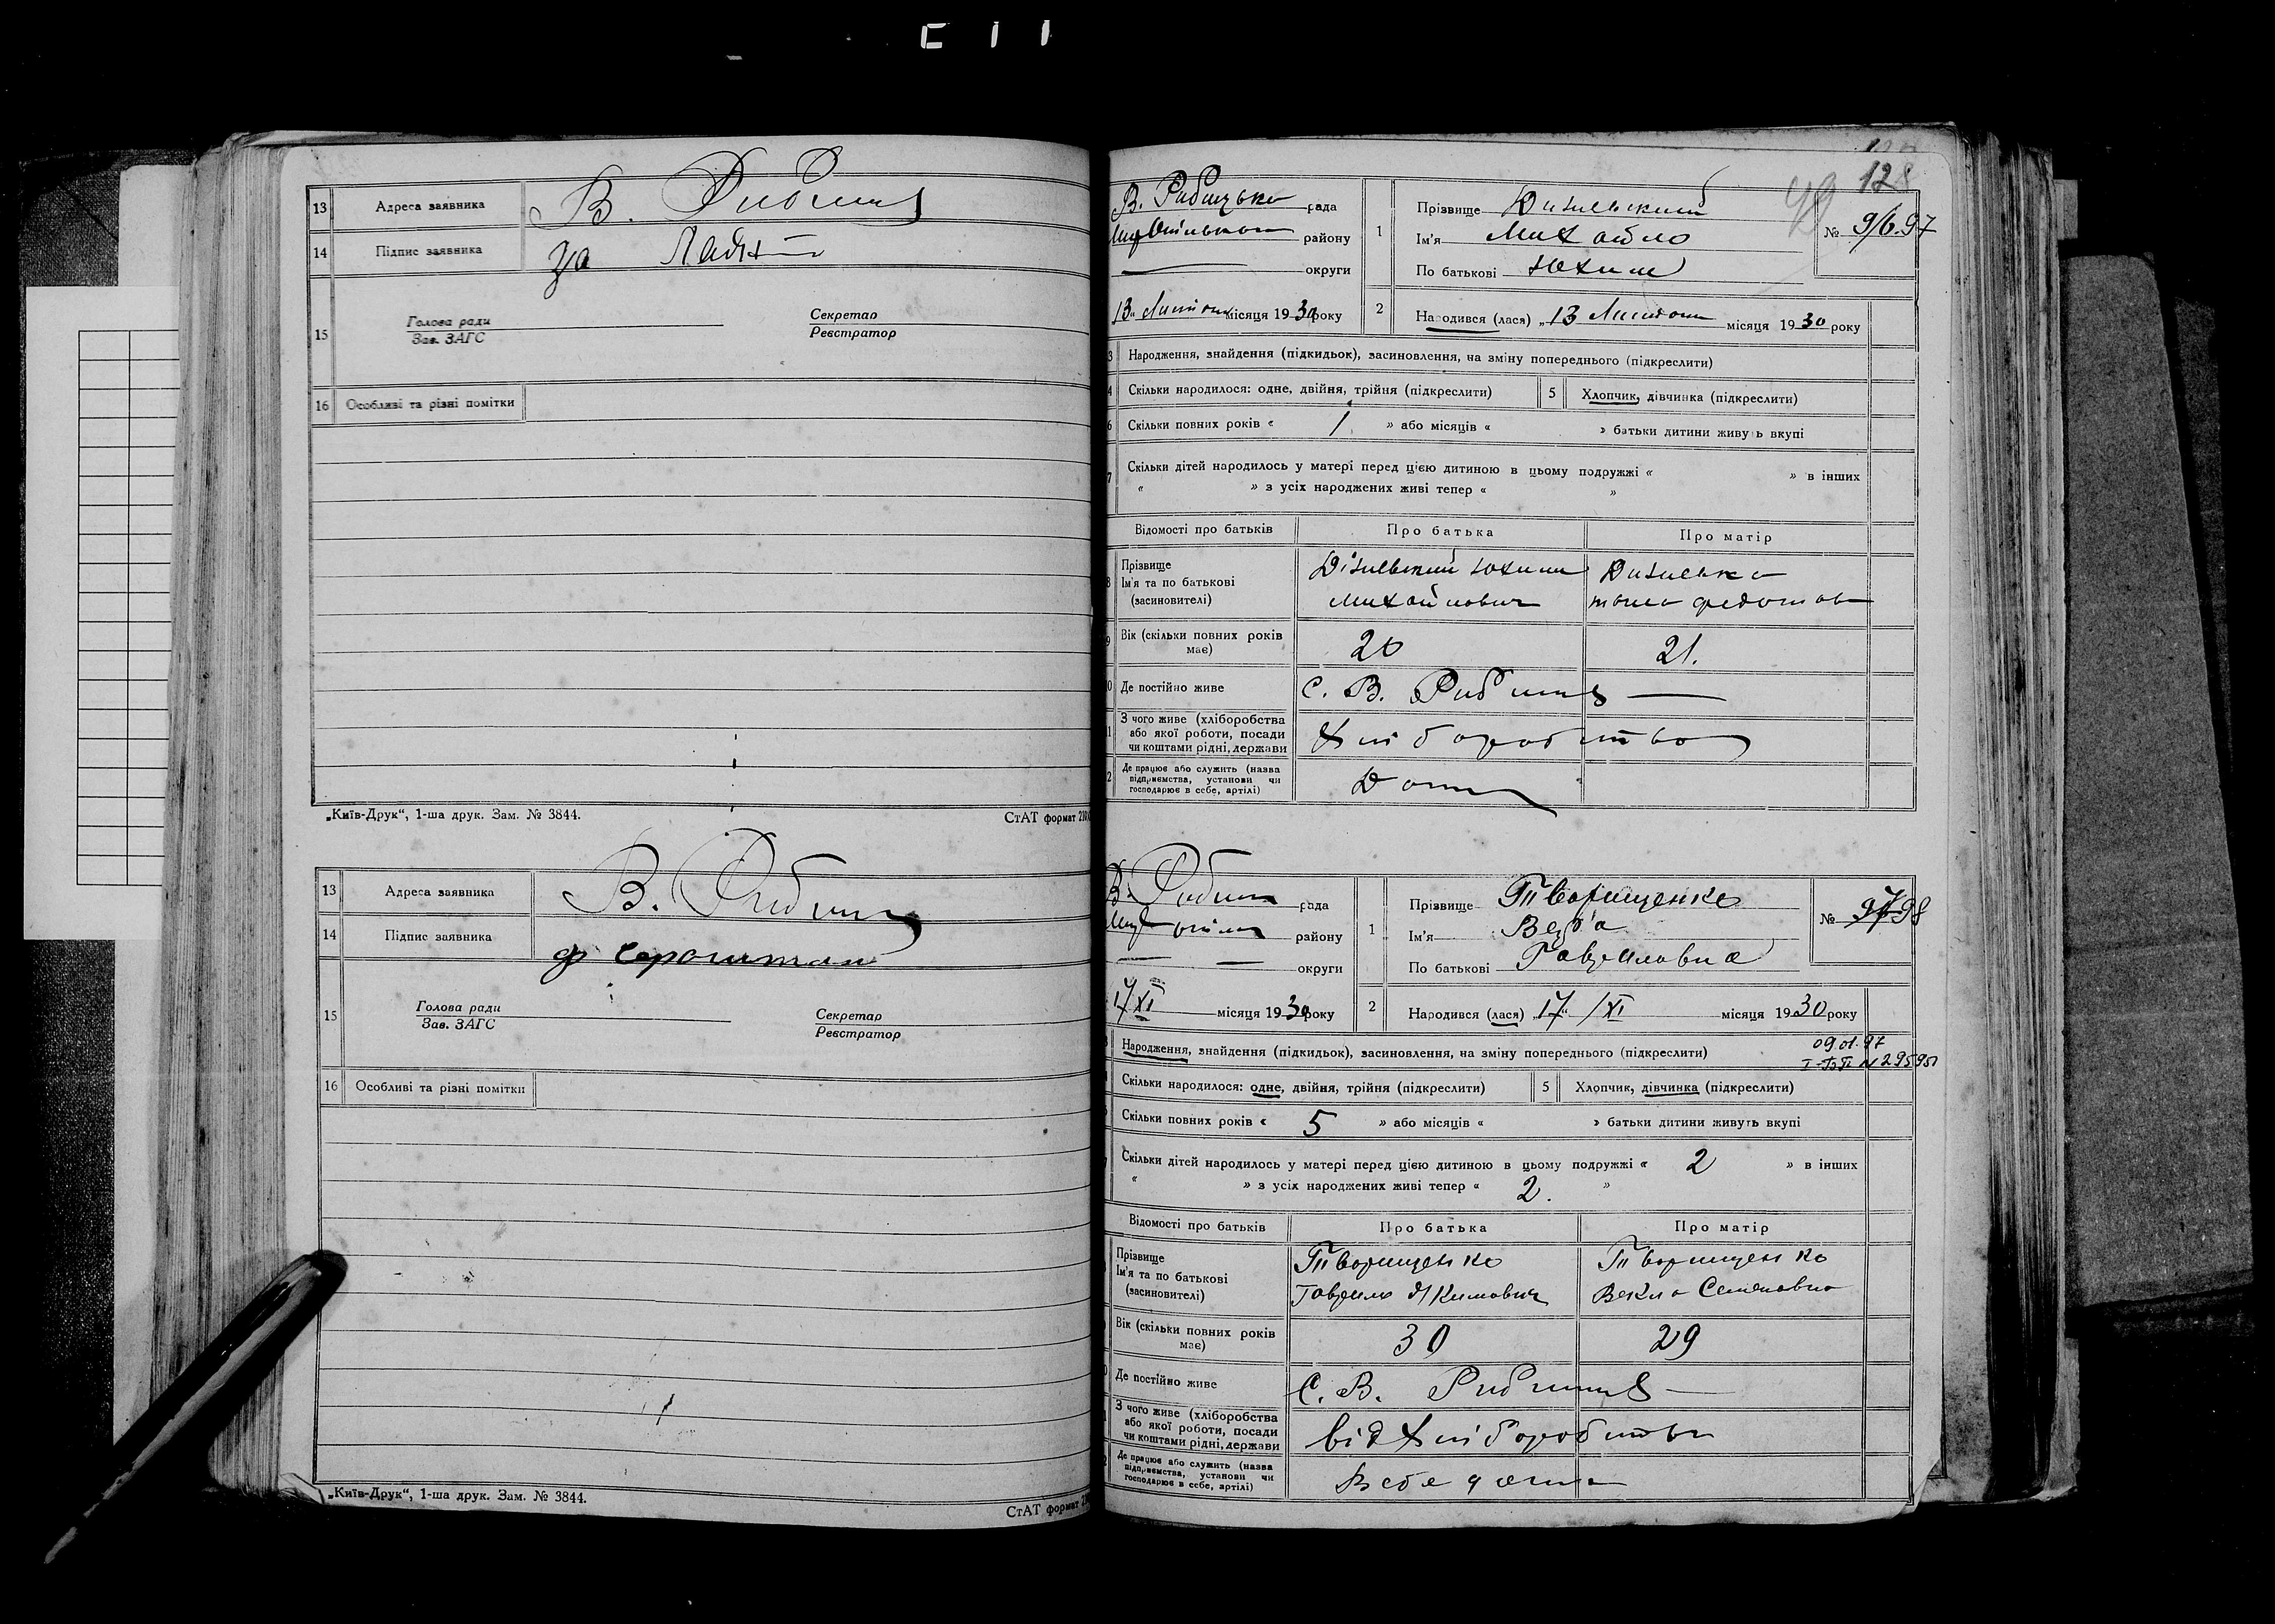 13 Адреса заявника В. Рибиця
14 Підпис заявника за
15 Голова ради Секретар
Зав. ЗАГС Реєстратор
16 Особливі та різні помітки
„Київ-Друк“, 1-ша друк. Зам. № 3844. СтАТ формат
13 Адреса заявника В. Рибиця
14 Підпис заявника
15 Голова ради Секретар
Зав. ЗАГС Реєстратор
16 Особливі та різні помітки
„Київ-Друк“, 1-ша друк. Зам. № 3844. СтАТ формат
128
В. Рибицька рада
району
округи
13 місяця 1930 року
1 Прізвище
Ім'я Михайло
По батькові Юхим
№ 96. 97
2 Народився (лася) „13 Листопа місяця 1930 року
3 Народження, знайдення (підкидьок), засиновлення, на зміну попереднього (підкреслити)
4 Скільки народилося: одне, двійня, трійня (підкреслити) 5 Хлопчик, дівчинка (підкреслити)
6 Скільки повних років « 1. » або місяців « » батьки дитини живуть вкупі
7 Скільки дітей народилось у матері перед цією дитиною в цьому подружжі « » в інших
« » з усіх народжених живі тепер « »
Відомості про батьків Про батька Про матір
Прізвище
Ім'я та по батькові
(засновителі)
Юхим
Михайлович
Вік (скільки повних років має) 20 21.
Де постійно живе С. В. Рибиця —
З чого живе (хліборобства або якої роботи, посади чи коштами рідні, держави хліборобство
Де працює або служить (назва підприємства, установи чи господарює в себе, артілі) Дома
В. Рибиця рада
району
округи
17/XI місяця 1930 року
1 Прізвище Творищенко
Ім'я Вєра
По батькові Гавриловна
№ 97 98
2 Народився (лася) „17“ /XI місяця 1930 року
09.01.97
Народження, знайдення (підкидьок), засиновлення, на зміну попереднього (підкреслити)
Скільки народилося: одне, двійня, трійня (підкреслити) 5 Хлопчик, дівчинка (підкреслити)
Скільки повних років « 5 » або місяців « » батьки дитини живуть вкупі
Скільки дітей народилось у матері перед цією дитиною в цьому подружжі « 2 » в інших
« » з усіх народжених живі тепер « 2. »
Відомості про батьків Про батька Про матір
Прізвище
Ім'я та по батькові
(засиновителі)
Творищенко
Гаврило Якимович
Творищенко
Векла Семеновна
Вік (скільки повних років має) 30 29
Де постійно живе С. В. Рибиця —
З чого живе (хліборобства або якої роботи, посади чи коштами рідні, держави від хліборобства
Де працює або служить (назва підприємства, установи чи господарює в себе, артілі) В себе дома